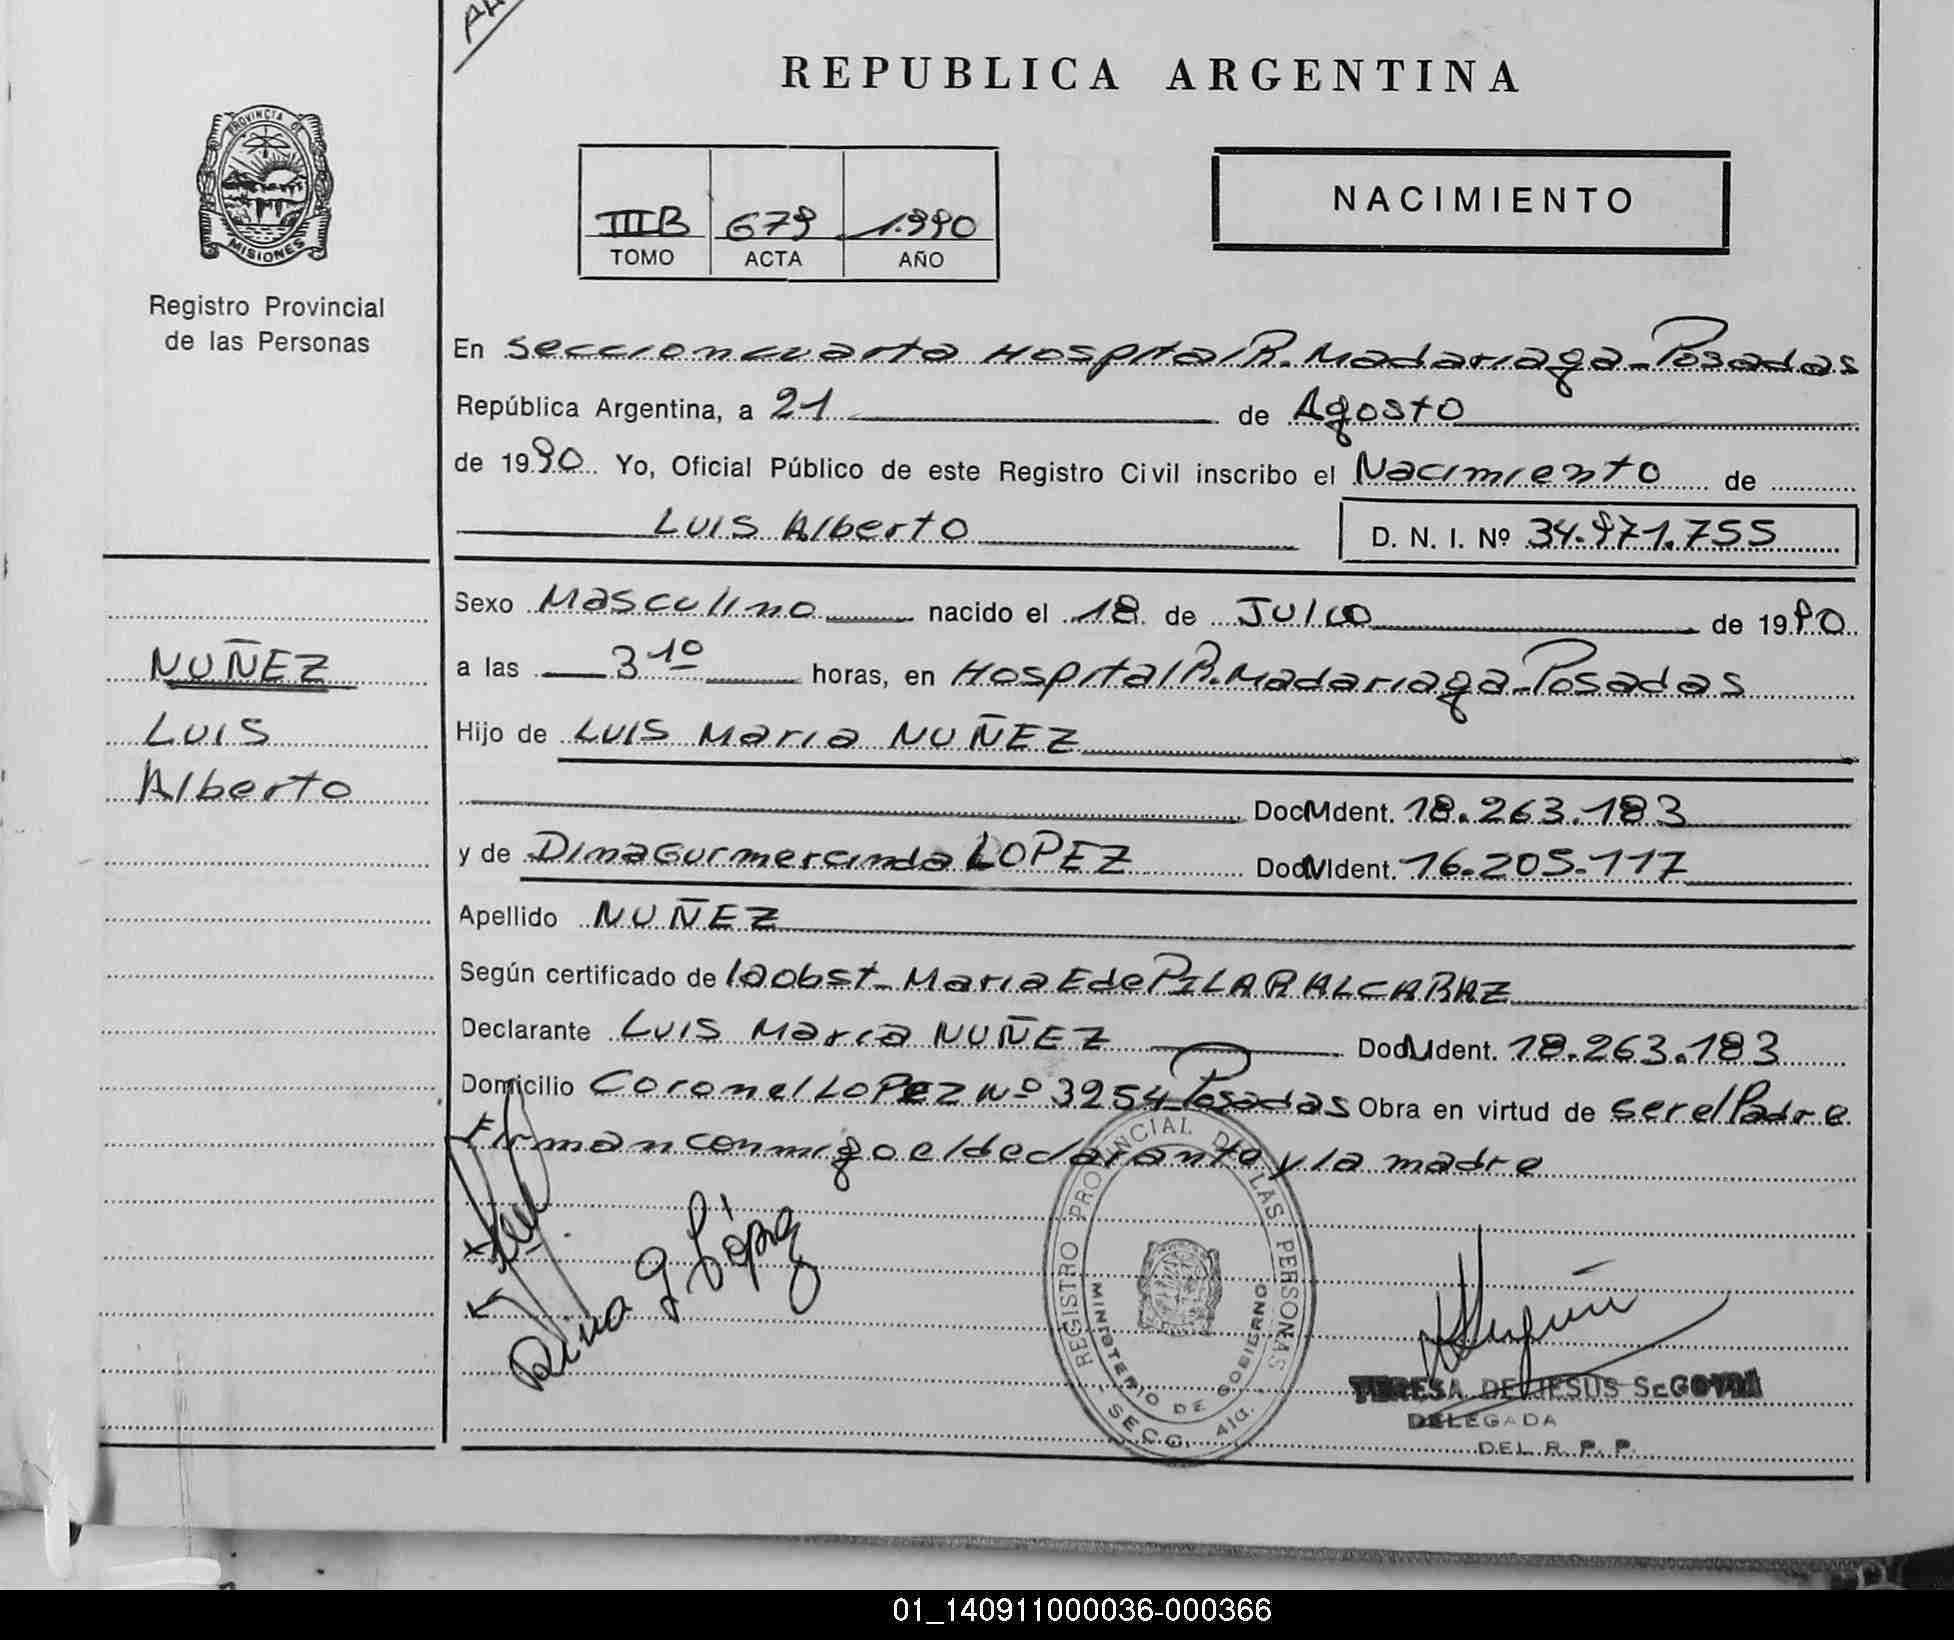 REPUBLICA ARGENTINA
PROVINCIA DE
MISIONES
Registro Provincial
de las Personas
IIIB 679 1.990
TOMO ACTA AÑO
NACIMIENTO
En Seccion cuarta Hospital R. Madariaga - Posadas
República Argentina, a 21 de Agosto
de 1990 Yo, Oficial Público de este Registro Civil inscribo el Nacimiento de
Luis Alberto D. N. I. Nº 34.971.755
Sexo Masculino nacido el 18 de Julio de 1990
a las 3 10 horas, en Hospital R. Madariaga - Posadas
Hijo de Luis Maria NUÑEZ
Doc M Ident. 18.263.183
y de Dina Gurmercinda LOPEZ Doc M Ident. 16.205.117
Apellido NUÑEZ
Según certificado de la obst. Maria E de PILAR ALCARAZ
Declarante Luis Maria NUÑEZ Doc U Ident. 18.263.183
Domicilio Coronel LOPEZ Nº 3254 - Posadas Obra en virtud de ser el Padre
Firman conmigo el declarante y la madre
NUÑEZ
Luis
Alberto
Dina G López
REGISTRO PROVINCIAL DE LAS PERSONAS
MINISTERIO DE GOBIERNO
SECC. 4ta.
TERESA DE JESUS SEGOVIA
DELEGADA
DEL R. P. P.
01_140911000036-000366